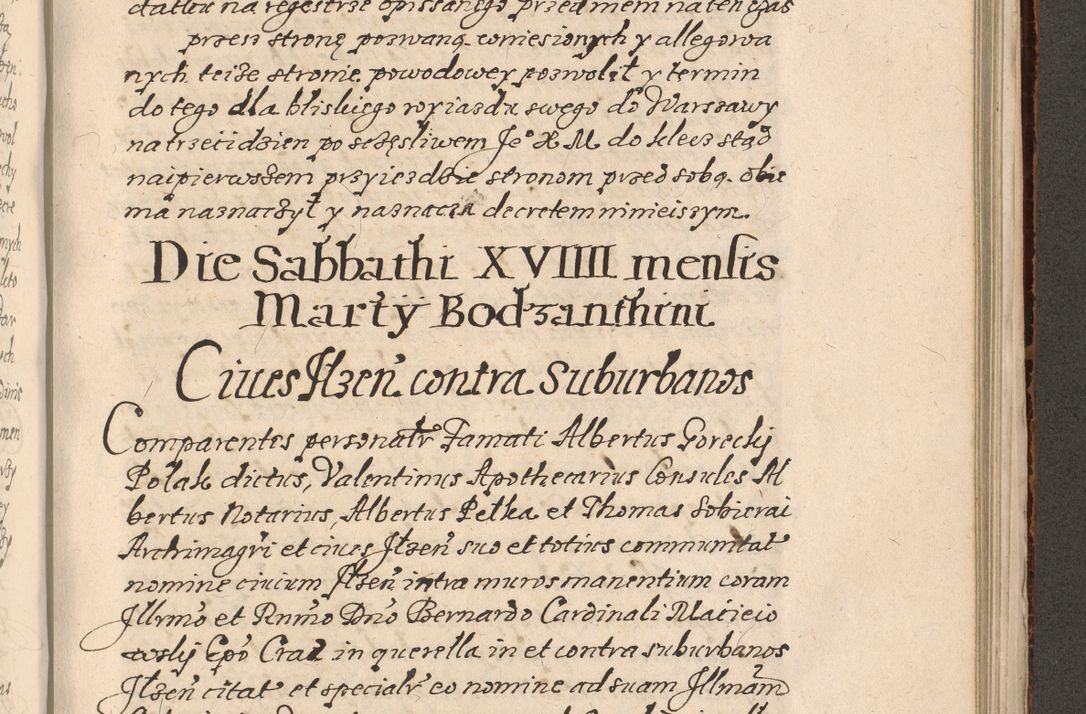 datku na regestrze opissanego przed mem na ten czas
przess stronę poswaną comiesionych y allegowa
nych teize stronie powodowey poswolił y termin
do tego dla bliskiego royiazdu swego do Warszawy
na trzeci dzien po sczęsliwem Je° K M do kleez stąd
naipierwszem przyiezdzie stronom przed sobą obie
ma nasnaczył y nasnacza decretem ninieiszym.
Die Sabbathi XVIIII mensis
Martÿ Bodzanthini
Ciues Ilzen̄ contra Suburbanos
Comparentes personalr̄ Famati Albertus Gorecky
Polak dictus, Valentinus Apothecarius Consules Al
bertus Notarius, Albertus Pelka et Thomas Sobierai
Archimagri et ciues Jlzen̄ suo et totius communitat̄
nomine ciuium Jlzen̄ intra muros manentium coram
Jllrmo̅ et Rnmo̅ Dno̅ Bernardo Cardinali Macieio
wsky Epo̅ Crac̄ in querella in et contra suburbanos
Jlzen̄ citat̄ et specialr̄ eo nomine ad suam Jllmam̄